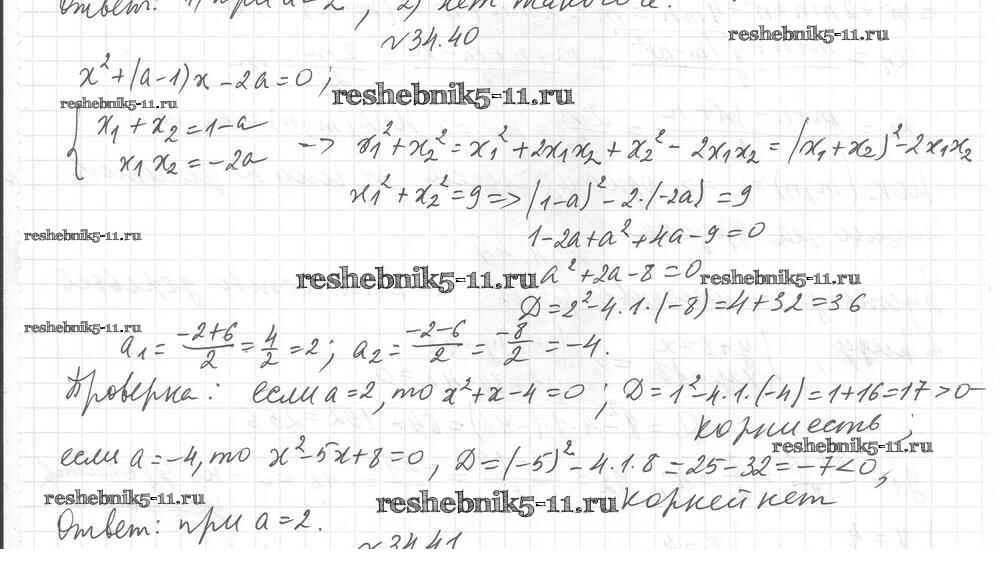 Ответ: 1) при a = 2, 2) нет такого a.
№34.40
reshebnik5-11.ru
x² + (a-1)x - 2a = 0;
reshebnik5-11.ru
reshebnik5-11.ru
{ x₁ + x₂ = 1-a
x₁ x₂ = -2a
-> x₁² + x₂² = x₁² + 2x₁x₂ + x₂² - 2x₁x₂ = (x₁ + x₂)² - 2x₁x₂
x₁² + x₂² = 9 => (1-a)² - 2·(-2a) = 9
reshebnik5-11.ru
1 - 2a + a² + 4a - 9 = 0
reshebnik5-11.ru
a² + 2a - 8 = 0
reshebnik5-11.ru
D = 2² - 4·1·(-8) = 4 + 32 = 36
reshebnik5-11.ru
a₁ = (-2+6)/2 = 4/2 = 2; a₂ = (-2-6)/2 = -8/2 = -4.
Проверка: если a = 2, то x² + x - 4 = 0; D = 1² - 4·1·(-4) = 1 + 16 = 17 > 0 -
корни есть;
reshebnik5-11.ru
если a = -4, то x² - 5x + 8 = 0, D = (-5)² - 4·1·8 = 25 - 32 = -7 < 0,
reshebnik5-11.ru
reshebnik5-11.ru
корней нет
Ответ: при a = 2.
№34.41